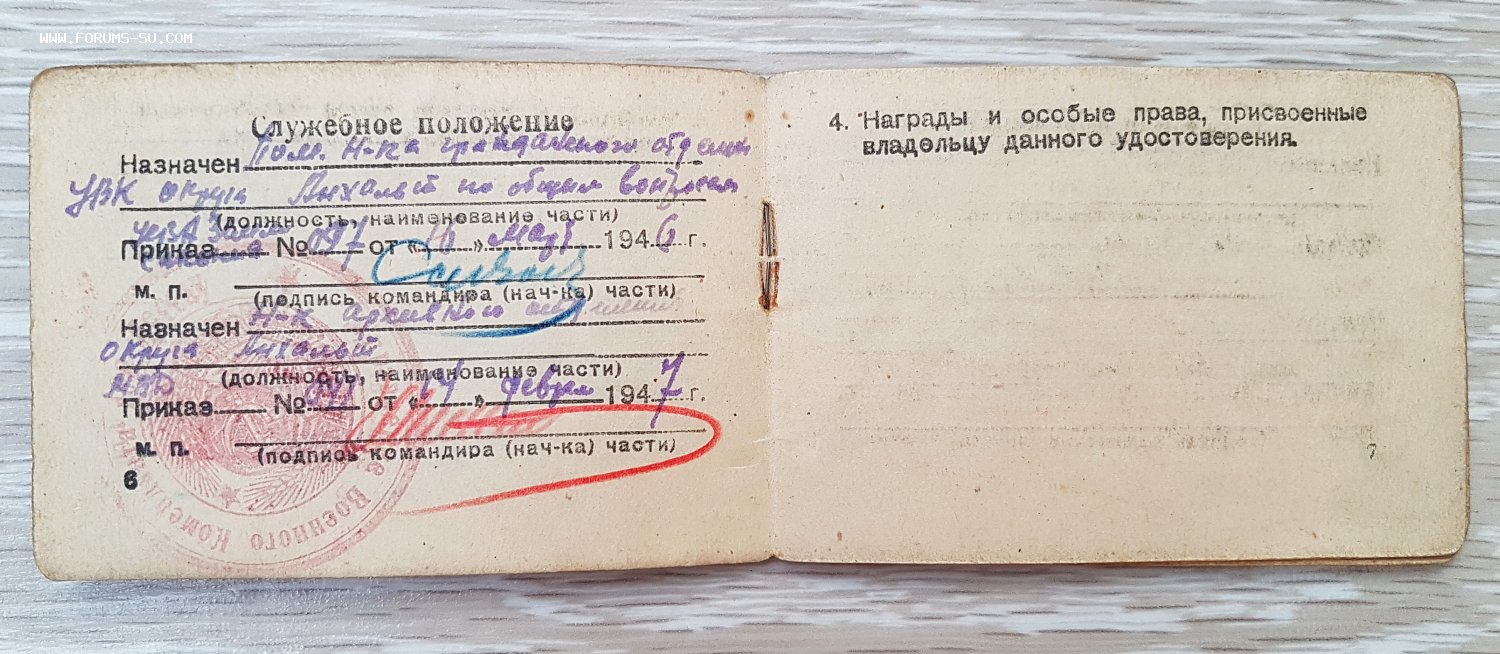 WWW.FORUMS-SU.COM
Служебное положение
Назначен Пом. Н-ка гражданского отделен
УВК округа Анхальт по общим вопросам
(должность, наименование части)
Приказ № 097 от «16» 1946 г.
м. п. (подпись командира (нач-ка) части)
Назначен Н-к архивного отделения
округа Анхальт
(должность, наименование части)
Приказ № от «14» февраля 1947 г.
м. п. (подпись командира (нач-ка) части)
6
Военного Коменд
4. Награды и особые права, присвоенные
владельцу данного удостоверения.
7